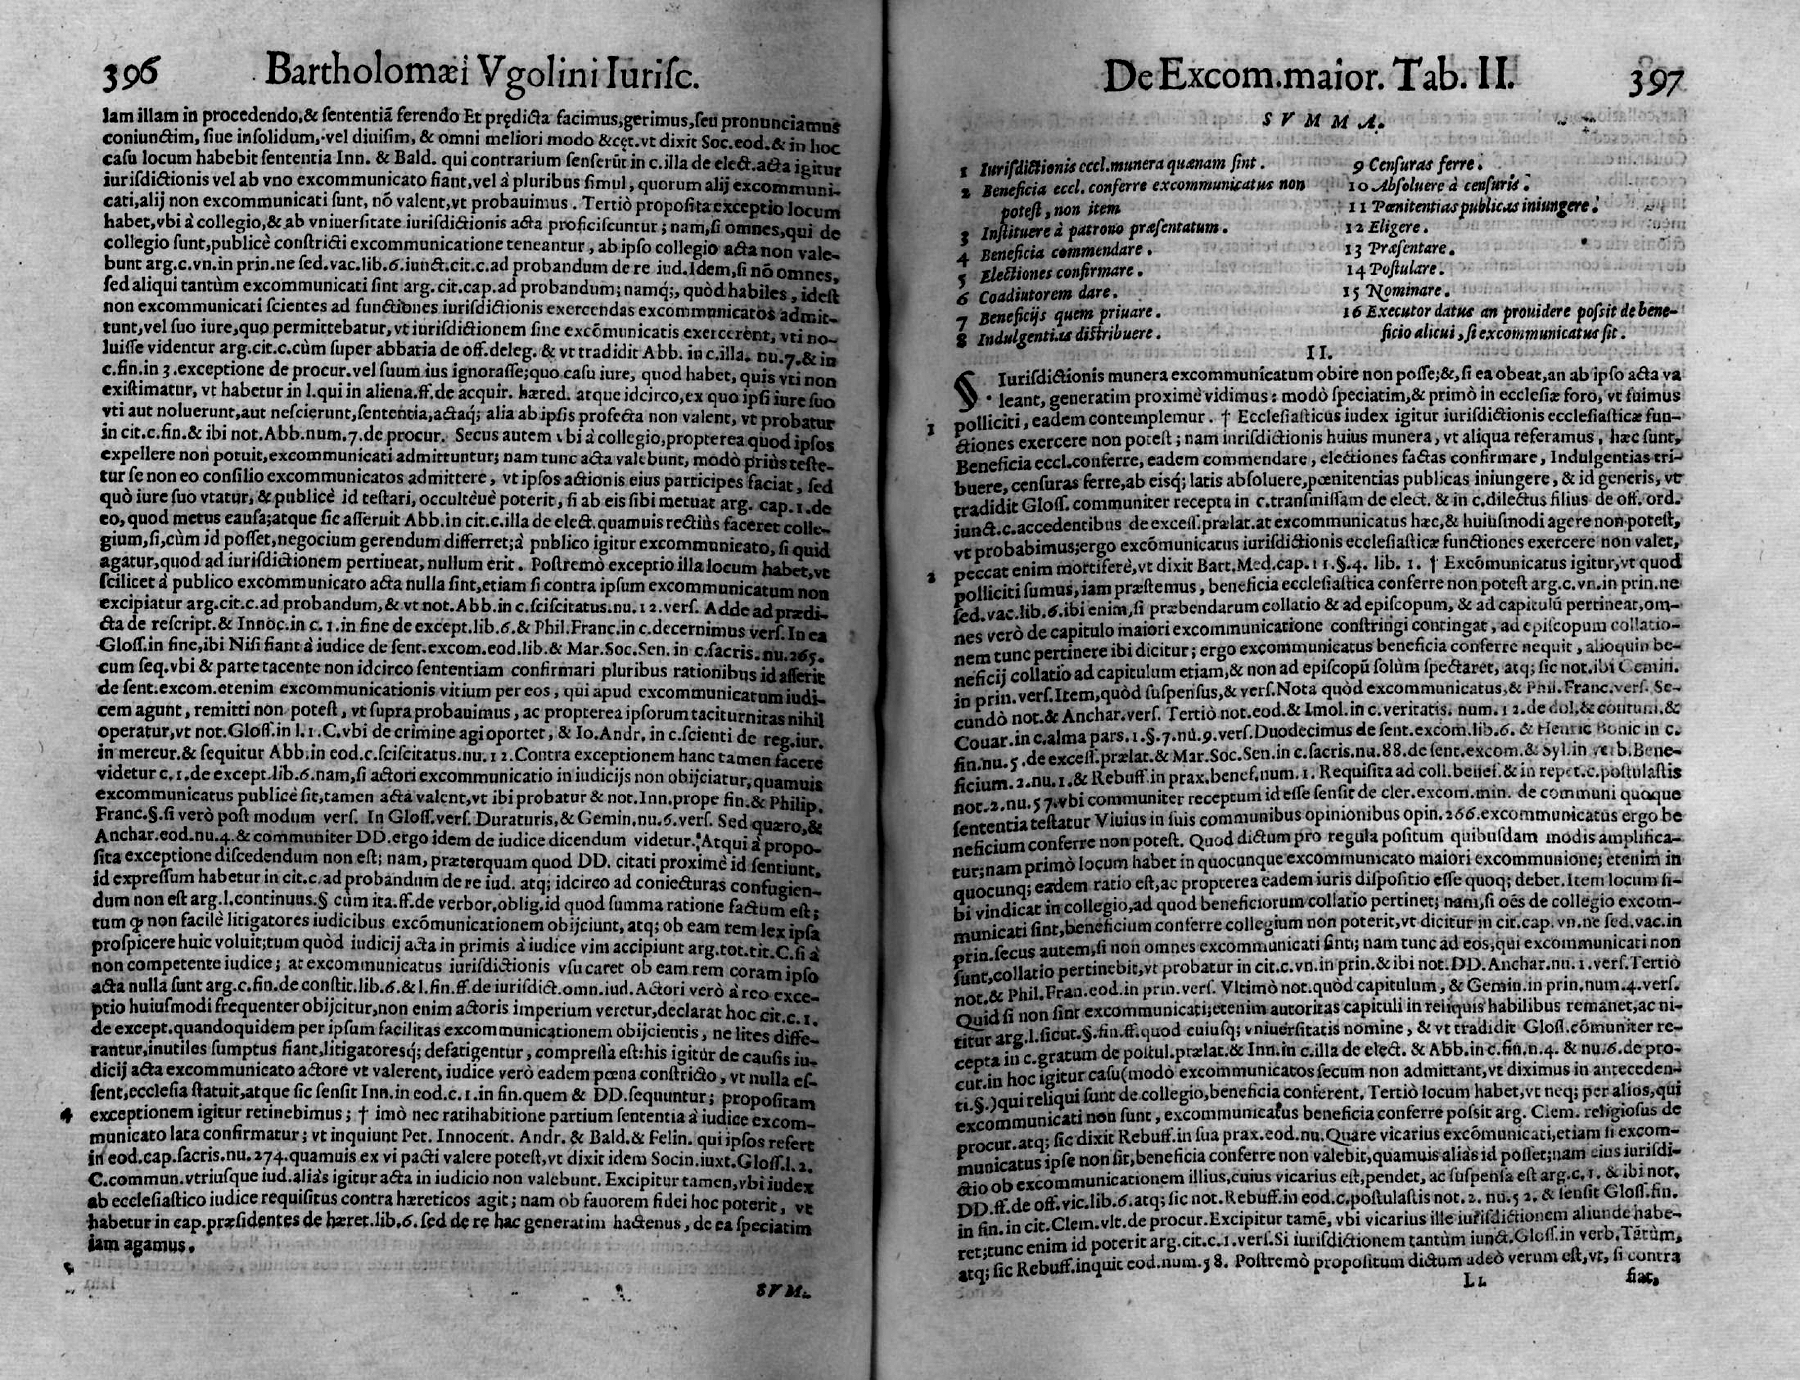 396 Bartholomæi Vgolini Iuriſc.
lam illam in procedendo,& ſententiā ferendo Et prędicta facimus,gerimus,ſeu pronunciamus
coniunctim, ſiue inſolidum, vel diuiſim, & omni meliori modo &cęt. vt dixit Soc.eod.& in hoc
caſu locum habebit ſententia Inn. & Bald. qui contrarium ſenſerūt in c.illa de elect.acta igitur
iuriſdictionis vel ab vno excommunicato fiant,vel à pluribus ſimul, quorum alij excommuni-
cati,alij non excommunicati ſunt, nō valent,vt probauimus. Tertiò propoſita exceptio locum
habet,vbi à collegio,& ab vniuerſitate iuriſdictionis acta proficiſcuntur; nam,ſi omnes,qui de
collegio ſunt,publicè conſtricti excommunicatione teneantur, ab ipſo collegio acta non vale-
bunt arg.c.vn.in prin.ne ſed.vac.lib.6.iunct.cit.c.ad probandum de re iud.Idem,ſi nō omnes,
ſed aliqui tantùm excommunicati ſint arg.cit.cap.ad probandum; namq;, quòd habiles, ideſt
non excommunicati ſcientes ad functiones iuriſdictionis exercendas excommunicatos admit-
tunt,vel ſuo iure,quo permittebatur,vt iuriſdictionem ſine excōmunicatis exercerent, vti no-
luiſſe videntur arg.cit.c.cùm ſuper abbatia de off.deleg. & vt tradidit Abb. in c.illa. nu.7.& in
c.fin.in 3.exceptione de procur.vel ſuum ius ignoraſſe;quo caſu iure, quod habet, quis vti non
exiſtimatur, vt habetur in l.qui in aliena.ff.de acquir. hæred. atque idcirco,ex quo ipſi iure ſuo
vti aut noluerunt,aut neſcierunt,ſententia,actaq; alia ab ipſis profecta non valent, vt probatur
in cit.c.fin.& ibi not.Abb.num.7.de procur. Secus autem vbi à collegio,propterea quod ipſos
expellere non potuit,excommunicati admittuntur; nam tunc acta valebunt, modò priùs teſte-
tur ſe non eo conſilio excommunicatos admittere, vt ipſos actionis eius participes faciat, ſed
quò iure ſuo vtatur, & publicè id teſtari, occultèuè poterit, ſi ab eis ſibi metuat arg. cap.1.de
eo, quod metus cauſa;atque ſic aſſeruit Abb.in cit.c.illa de elect.quamuis rectiùs faceret colle-
gium,ſi,cùm id poſſet,negocium gerendum differret;à publico igitur excommunicato, ſi quid
agatur,quod ad iuriſdictionem pertineat, nullum erit. Poſtremò exceptio illa locum habet,vt
ſcilicet à publico excommunicato acta nulla ſint,etiam ſi contra ipſum excommunicatum non
excipiatur arg.cit.c.ad probandum, & vt not.Abb.in c.ſciſcitatus.nu.12.verſ. Adde ad prædi-
cta de reſcript.& Innoc.in c.1.in fine de except.lib.6.& Phil.Franc.in c.decernimus verſ. In ea
Gloſſ.in fine,ibi Niſi fiant à iudice de ſent.excom.eod.lib.& Mar.Soc.Sen.in c.ſacris.nu.265.
cum ſeq.vbi & parte tacente non idcirco ſententiam confirmari pluribus rationibus id aſſerit
de ſent.excom.etenim excommunicationis vitium per eos, qui apud excommunicatum iudi-
cem agunt, remitti non poteſt, vt ſupra probauimus, ac propterea ipſorum taciturnitas nihil
operatur,vt not.Gloſſ.in l.1.C.vbi de crimine agi oportet, & Io.Andr, in c.ſcienti de reg.iur.
in mercur.& ſequitur Abb.in eod.c.ſciſcitatus.nu.12.Contra exceptionem hanc tamen facere
videtur c.1.de except.lib.6.nam,ſi actori excommunicatio in iudicijs non obijciatur,quamuis
excommunicatus publicè ſit,tamen acta valent,vt ibi probatur & not.Inn.prope fin.& Philip.
Franc.§.ſi verò poſt modum verſ. In Gloſſ.verſ. Duraturis,& Gemin,nu.6.verſ. Sed quæro,&
Anchar.eod.nu.4.& communiter DD.ergo idem de iudice dicendum videtur. Atqui à propo-
ſita exceptione diſcedendum non eſt; nam, præterquam quod DD. citati proximè id ſentiunt,
id expreſſum habetur in cit.c.ad probandum de re iud. atq; idcirco ad coniecturas confugien-
dum non eſt arg.l.continuus.§ cùm ita.ff.de verbor,oblig.id quod ſumma ratione factum eſt;
tum ꝙ non facilè litigatores iudicibus excōmunicationem obijciunt, atq; ob eam rem lex ipſa
proſpicere huic voluit;tum quòd iudicij acta in primis à iudice vim accipiunt arg.tot.tit.C.ſi à
non competente iudice; at excommunicatus iuriſdictionis vſu caret ob eam rem coram ipſo
acta nulla ſunt arg.c.fin.de conſtit.lib.6.& l.fin.ff.de iuriſdict.omn.iud.Actori verò à reo exce-
ptio huiuſmodi frequenter obijcitur,non enim actoris imperium veretur,declarat hoc cit.c.1.
de except.quandoquidem per ipſum facilitas excommunicationem obijcientis, ne lites diffe-
rantur,inutiles ſumptus fiant,litigatoresq; defatigentur, compreſſa eſt:his igitur de cauſis iu-
dicij acta excommunicato actore vt valerent, iudice verò eadem pœna conſtricto, vt nulla eſ-
ſent,eccleſia ſtatuit,atque ſic ſenſit Inn.in eod.c.1.in fin.quem & DD.ſequuntur; propoſitam
4 exceptionem igitur retinebimus; † imò nec ratihabitione partium ſententia à iudice excom-
municato lata confirmatur; vt inquiunt Pet. Innocent. Andr. & Bald.& Felin. qui ipſos refert
in eod.cap.ſacris.nu.274.quamuis ex vi pacti valere poteſt,vt dixit idem Socin.iuxt.Gloſſ.l.2.
C.commun.vtriuſque iud.aliàs igitur acta in iudicio non valebunt. Excipitur tamen,vbi iudex
ab eccleſiaſtico iudice requiſitus contra hæreticos agit; nam ob fauorem fidei hoc poterit, vt
habetur in cap.præſidentes de hæret.lib.6. ſed de re hac generatim hactenus, de ea ſpeciatim
iam agamus.
SVM.
De Excom.maior. Tab. II. 397
SVMMA.
1 Iuriſdictionis eccl.munera quænam ſint.
2 Beneficia eccl. conferre excommunicatus non
poteſt, non item
3 Inſtituere à patrono præſentatum.
4 Beneficia commendare.
5 Electiones confirmare.
6 Coadiutorem dare.
7 Beneficijs quem priuare.
8 Indulgentias diſtribuere.
9 Cenſuras ferre.
10 Abſoluere à cenſuris.
11 Pœnitentias publicas iniungere.
12 Eligere.
13 Præſentare.
14 Poſtulare.
15 Nominare.
16 Executor datus an prouidere poſsit de bene-
ficio alicui, ſi excommunicatus ſit.
II.
§. Iuriſdictionis munera excommunicatum obire non poſſe;&,ſi ea obeat,an ab ipſo acta va
leant, generatim proximè vidimus: modò ſpeciatim,& primò in eccleſiæ foro, vt ſuimus
1 polliciti, eadem contemplemur. † Eccleſiaſticus iudex igitur iuriſdictionis eccleſiaſticæ fun-
ctiones exercere non poteſt; nam iuriſdictionis huius munera, vt aliqua referamus, hæc ſunt,
Beneficia eccl.conferre, eadem commendare, electiones factas confirmare, Indulgentias tri-
buere, cenſuras ferre,ab eiſq; latis abſoluere,pœnitentias publicas iniungere, & id generis, vt
tradidit Gloſſ. communiter recepta in c.tranſmiſſam de elect. & in c.dilectus filius de off. ord.
iunct.c.accedentibus de exceſſ.prælat.at excommunicatus hæc,& huiuſmodi agere non poteſt,
vt probabimus;ergo excōmunicatus iuriſdictionis eccleſiaſticæ functiones exercere non valet,
2 peccat enim mortiferè,vt dixit Bart.Med.cap.11.§.4. lib. 1. † Excōmunicatus igitur,vt quod
polliciti ſumus, iam præſtemus, beneficia eccleſiaſtica conferre non poteſt arg.c.vn.in prin.ne
ſed.vac.lib.6.ibi enim,ſi præbendarum collatio & ad epiſcopum, & ad capitulū pertineat,om-
nes verò de capitulo maiori excommunicatione conſtringi contingat, ad epiſcopum collatio-
nem tunc pertinere ibi dicitur; ergo excommunicatus beneficia conferre nequit, alioquin be-
neficij collatio ad capitulum etiam,& non ad epiſcopū ſolùm ſpectaret, atq; ſic not.ibi Gemin.
in prin. verſ. Item,quòd ſuſpenſus,& verſ.Nota quòd excommunicatus,& Phil.Franc.verſ. Se-
cundò not.& Anchar.verſ. Tertiò not.eod.& Imol.in c.veritatis. num.12.de dol,& contum.&
Couar.in c.alma pars.1.§.7.nu.9.verſ.Duodecimus de ſent.excom.lib.6. & Henric Bonic in c.
fin.nu.5.de exceſſ.prælat.& Mar.Soc.Sen.in c.ſacris.nu.88.de ſent.excom.& Syl.in verb.Bene-
ficium.2.nu.1.& Rebuff.in prax.benef.num.1. Requiſita ad coll.benef.& in repet.c.poſtulaſtis
not.2.nu.57.vbi communiter receptum id eſſe ſenſit de cler.excom.min. de communi quoque
ſententia teſtatur Viuius in ſuis communibus opinionibus opin.266.excommunicatus ergo be
neficium conferre non poteſt. Quod dictum pro regula poſitum quibuſdam modis amplifica-
tur;nam primò locum habet in quocunque excommunicato maiori excommunione; etenim in
quocunq; eadem ratio eſt,ac propterea eadem iuris diſpoſitio eſſe quoq; debet.Item locum ſi-
bi vindicat in collegio,ad quod beneficiorum collatio pertinet; nam,ſi oēs de collegio excom-
municati ſint,beneficium conferre collegium non poterit,vt dicitur in cit.cap.vn.ne ſed.vac.in
prin.ſecus autem,ſi non omnes excommunicati ſint; nam tunc ad eos,qui excommunicati non
ſunt,collatio pertinebit,vt probatur in cit.c.vn.in prin.& ibi not.DD.Anchar.nu.1.verſ.Tertiò
not.& Phil.Fran.eod.in prin.verſ. Vltimò not.quòd capitulum, & Gemin.in prin.num.4.verſ.
Quid ſi non ſint excommunicati;etenim autoritas capituli in reliquis habilibus remanet,ac ni-
titur arg.l.ſicut.§.fin.ff.quod cuiuſq; vniuerſitatis nomine, & vt tradidit Gloſſ.cōmuniter re-
cepta in c.gratum de poſtul.prælat.& Inn.in c.illa de elect. & Abb.in c.fin.n.4. & nu.6.de pro-
cur.in hoc igitur caſu(modò excommunicatos ſecum non admittant,vt diximus in anteceden-
ti.§.)qui reliqui ſunt de collegio,beneficia conferent.Tertiò locum habet,vt neq; per alios,qui
excommunicati non ſunt, excommunicatus beneficia conferre poſsit arg. Clem. religioſus de
procur.atq; ſic dixit Rebuff.in ſua prax.eod.nu.Quare vicarius excōmunicati,etiam ſi excom-
municatus ipſe non ſit,beneficia conferre non valebit,quamuis aliàs id poſſet;nam eius iuriſdi-
ctio ob excommunicationem illius,cuius vicarius eſt,pendet, ac ſuſpenſa eſt arg.c.1. & ibi not.
DD.ff.de off.vic.lib.6.atq; ſic not.Rebuff.in eod.c.poſtulaſtis not.2. nu.52. & ſenſit Gloſſ.fin.
in fin.in cit.Clem.vlt.de procur.Excipitur tamē, vbi vicarius ille iuriſdictionem aliunde habe-
ret;tunc enim id poterit arg.cit.c.1.verſ.Si iuriſdictionem tantùm iunct.Gloſſ.in verb.Tātùm,
atq; ſic Rebuff.inquit eod.num.58. Poſtremò propoſitum dictum adeò verum eſt,vt, ſi contra
Ll fiat,